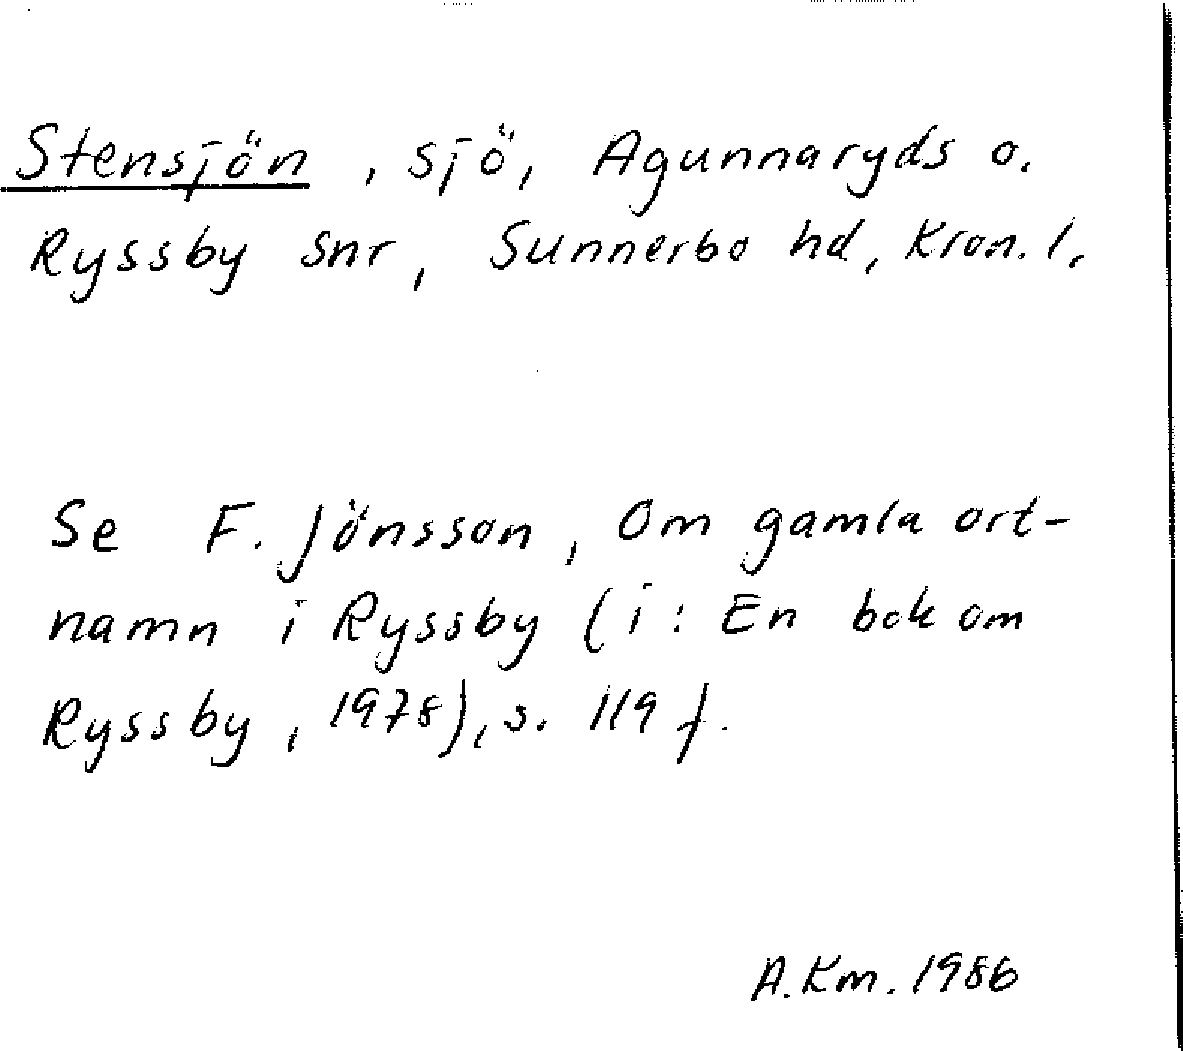 Stensjön, sjö, Agunnaryds o.
Ryssby snr, Sunnerbo hd, Kron. l.
Se F. Jönsson, Om gamla ort-
namn i Ryssby (i: En bok om
Ryssby, 1978), s. 119 f.
A.Km. 1986